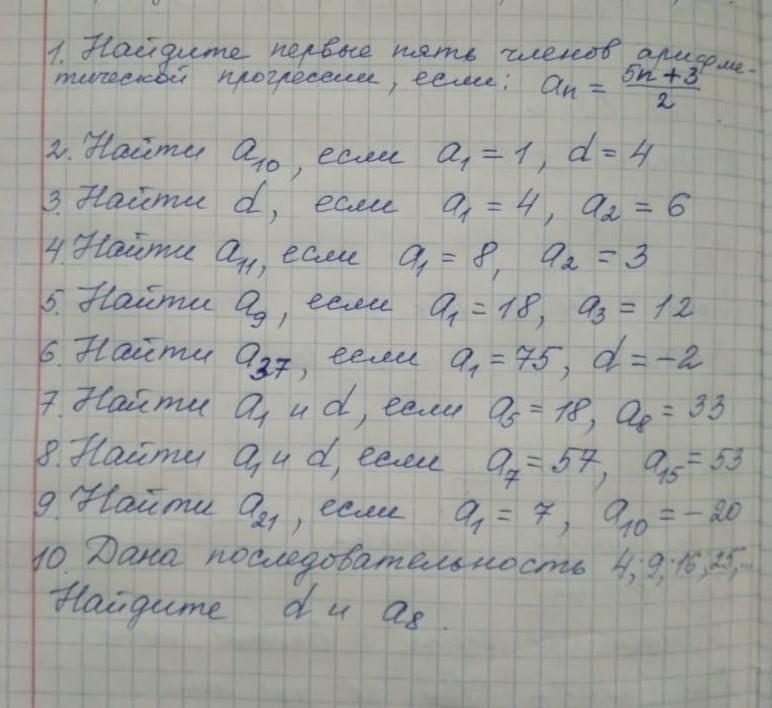 1. Найдите первые пять членов арифме-
тической прогрессии, если: aₙ = (5n+3)/2
2. Найти a₁₀, если a₁ = 1, d = 4
3. Найти d, если a₁ = 4, a₂ = 6
4. Найти a₁₁, если a₁ = 8, a₂ = 3
5. Найти a₉, если a₁ = 18, a₃ = 12
6. Найти a₃₇, если a₁ = 75, d = -2
7. Найти a₁ и d, если a₅ = 18, a₈ = 33
8. Найти a₁ и d, если a₇ = 57, a₁₅ = 53
9. Найти a₂₁, если a₁ = 7, a₁₀ = -20
10. Дана последовательность 4; 9; 16; 25,...
Найдите d и a₈.